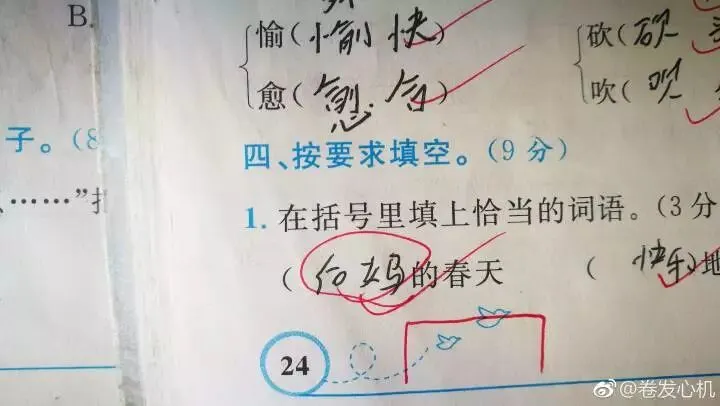 B.
愉(愉快)
砍(砍
愈(愈合)
吹(吹
子。(8
四、按要求填空。(9分)
……”
1. 在括号里填上恰当的词语。(3分
( 的春天 (快乐)地
24
@卷发心机